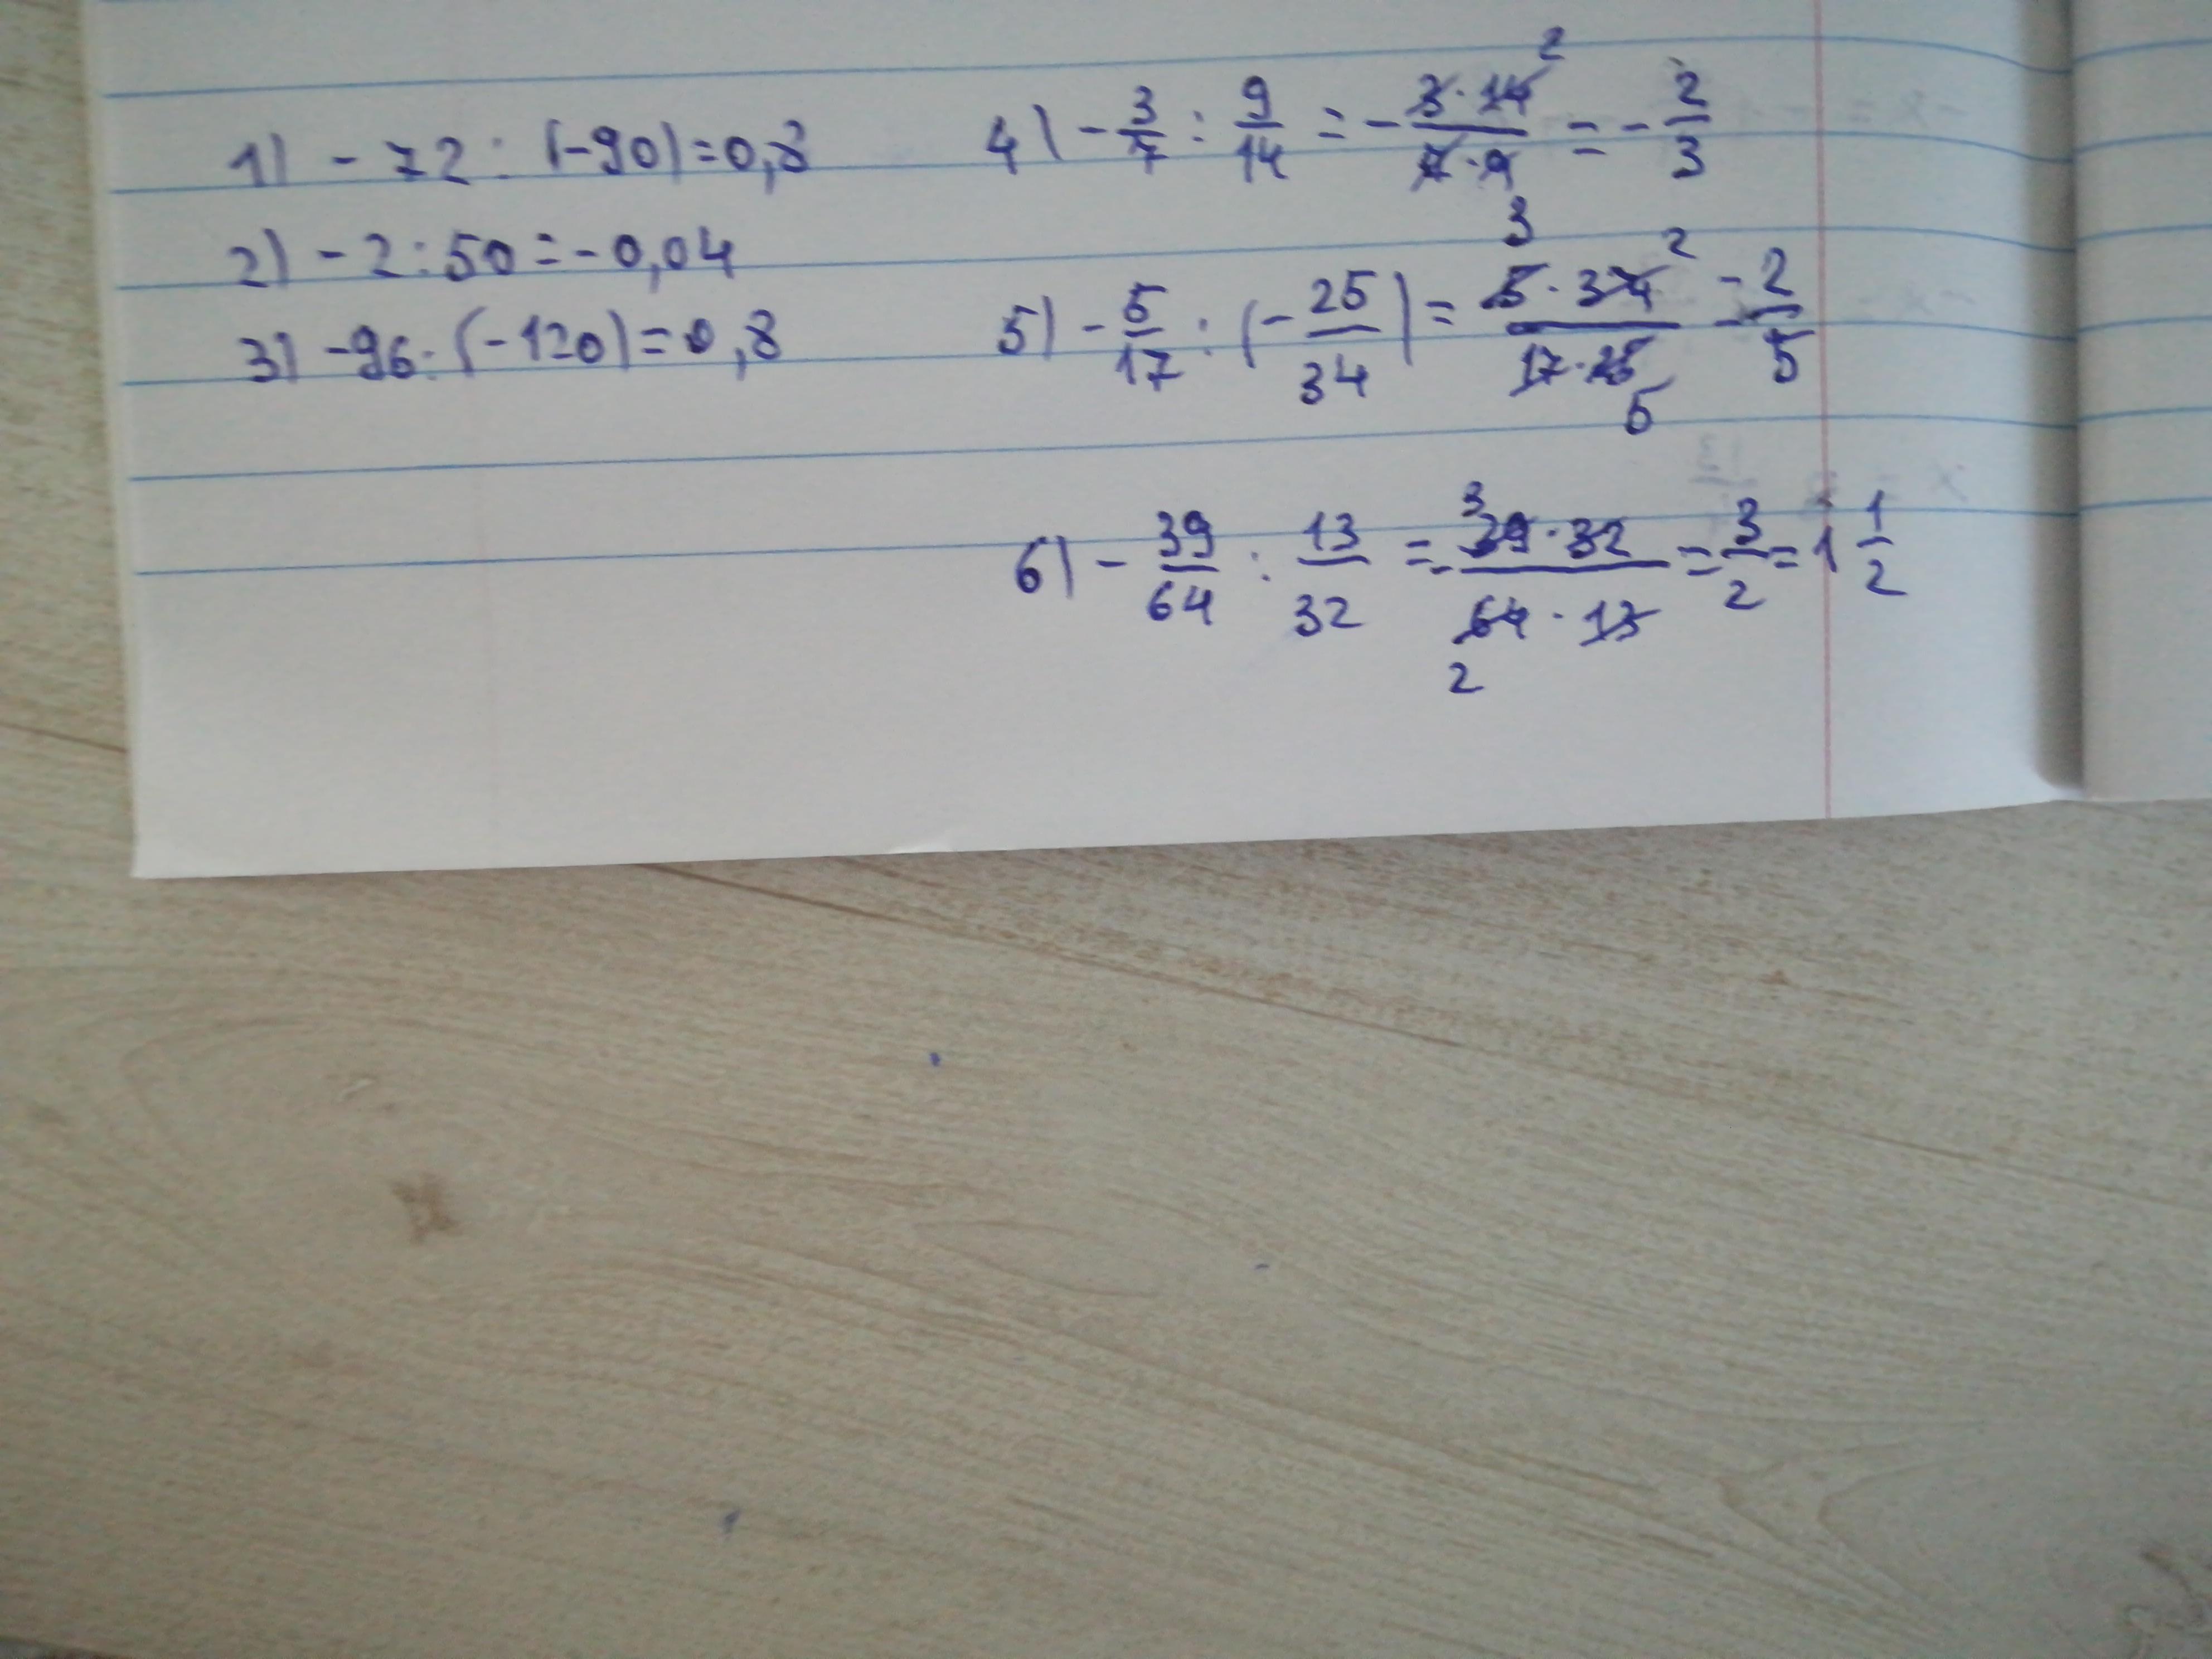 1) - 72 : (-90) = 0,8
2) - 2 : 50 = - 0,04
3) -96 : (-120) = 0,8
4) - 3/7 : 9/14 = - 3·14 2 / 7·9 3 = - 2/3
5) - 5/17 : (- 25/34) = 5·34 2 / 17·25 5 = 2/5
6) - 39/64 : 13/32 = - 3 39·32 / 64·13 2 = 3/2 = 1 1/2